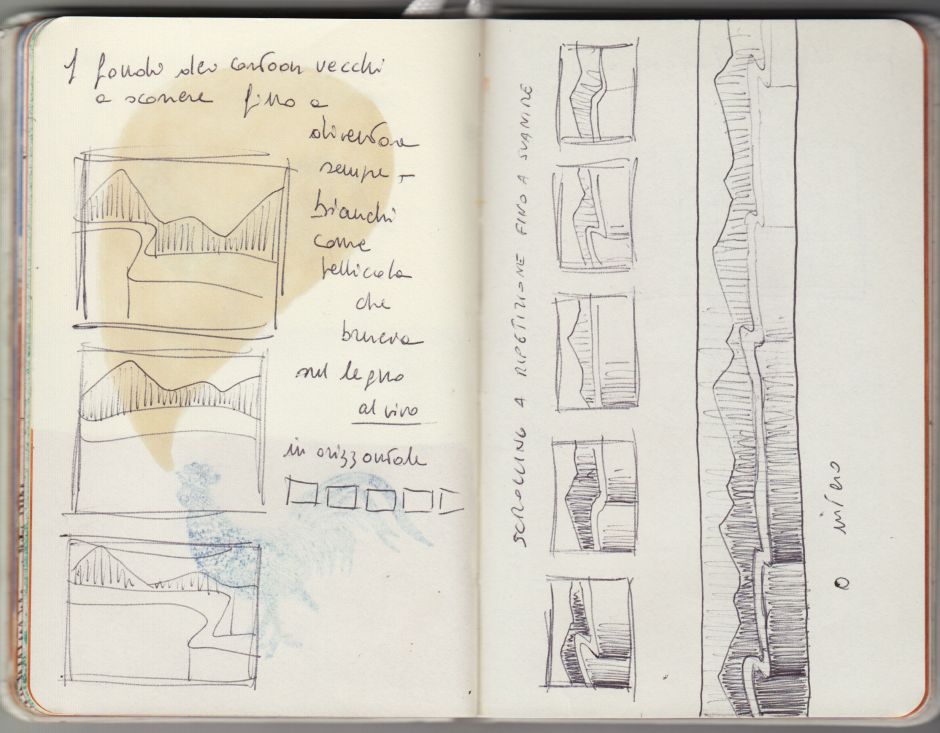 I fondi dei cartoon vecchi
a scorrere fino a
diventare
sempre +
bianchi
come
pellicola
che
brucia
sul legno
al vivo
in orizzontale
SCROLLING A RIPETIZIONE FINO A SVANIRE
O intero